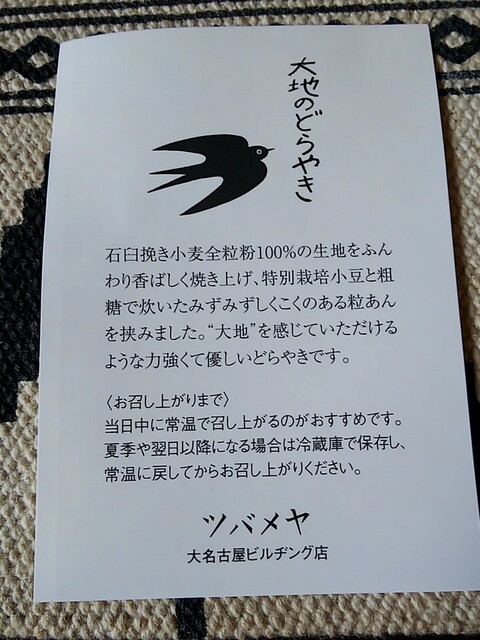 大地のどらやき
石臼挽き小麦全粒粉100%の生地をふん
わり香ばしく焼き上げ、特別栽培小豆と粗
糖で炊いたみずみずしくこくのある粒あん
を挟みました。“大地”を感じていただける
ような力強くて優しいどらやきです。
〈お召し上がりまで〉
当日中に常温で召し上がるのがおすすめです。
夏季や翌日以降になる場合は冷蔵庫で保存し、
常温に戻してからお召し上がりください。
ツバメヤ
大名古屋ビルヂング店